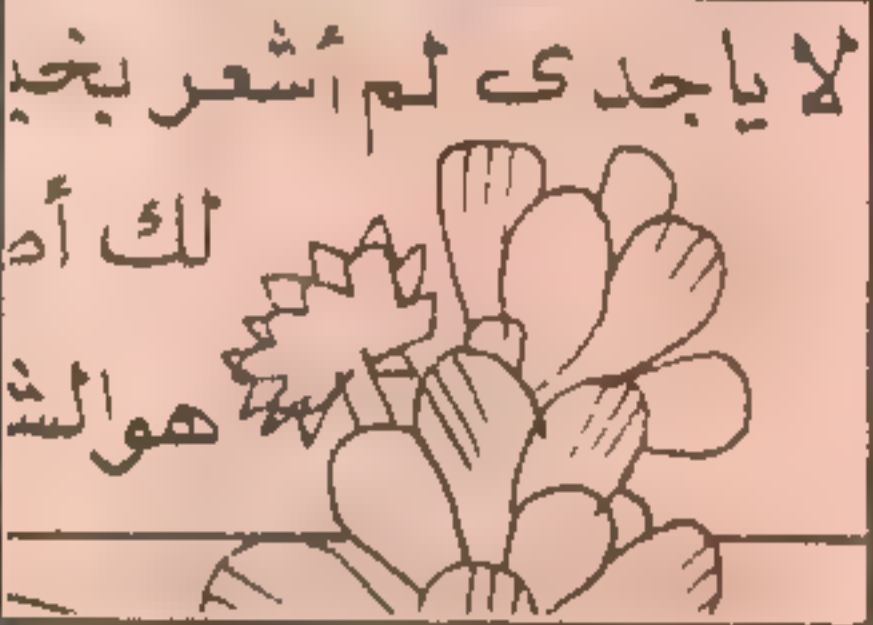 لا يا جدى لم أشعر بخيـ
لك أد
هو الشـ